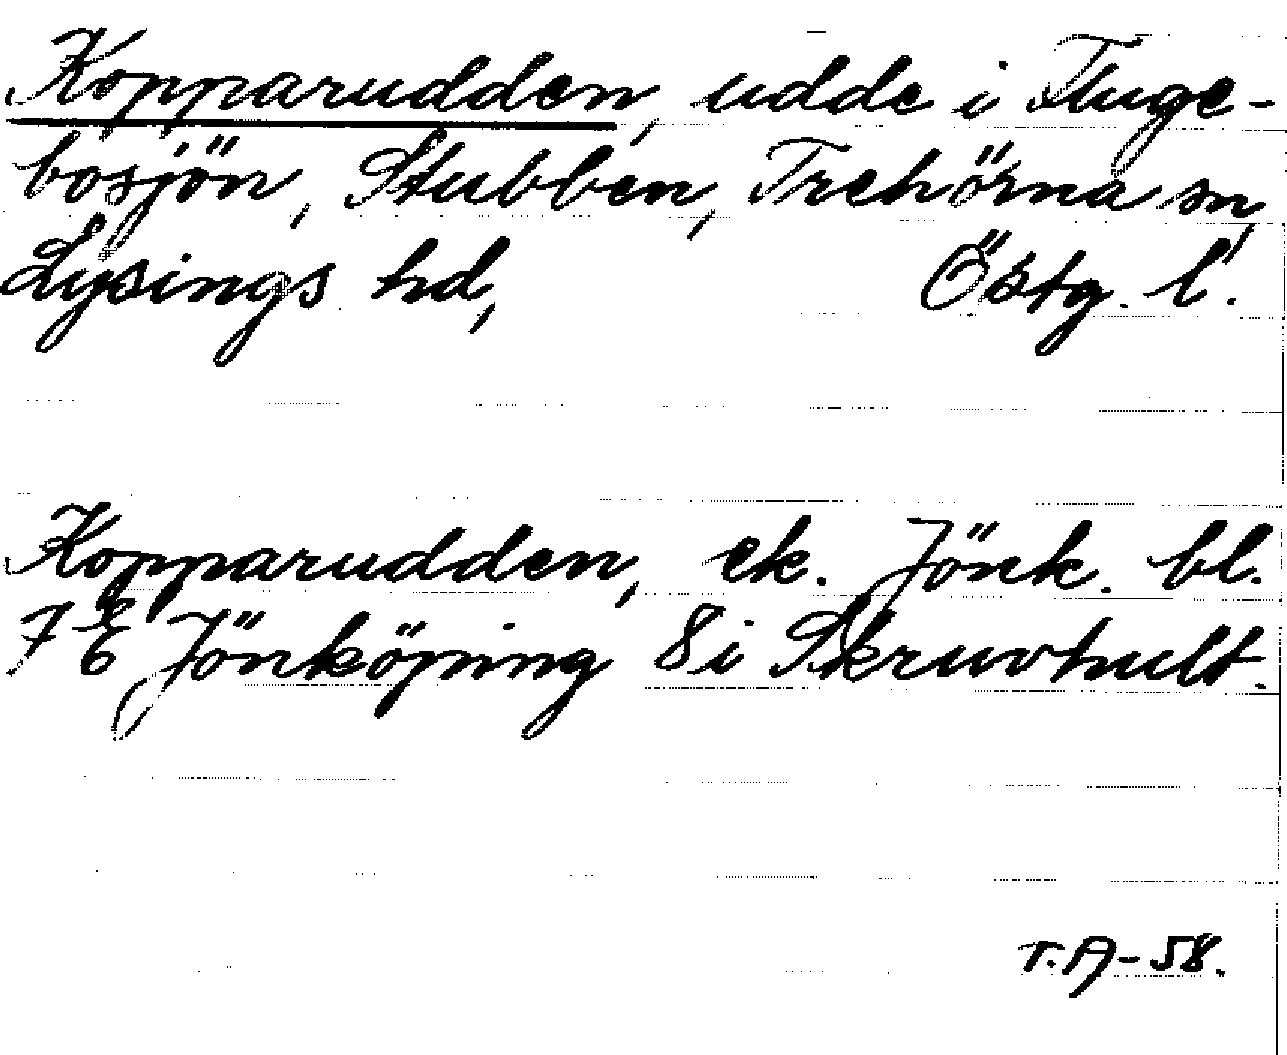 Kopparudden, udde i Fluge-
bosjön, Stubben, Trehörna sn,
Lysings hd, Östg. l.
Kopparudden, ek. Jönk. bl.
7 E Jönköping 8i Skruvhult.
T.A-58.